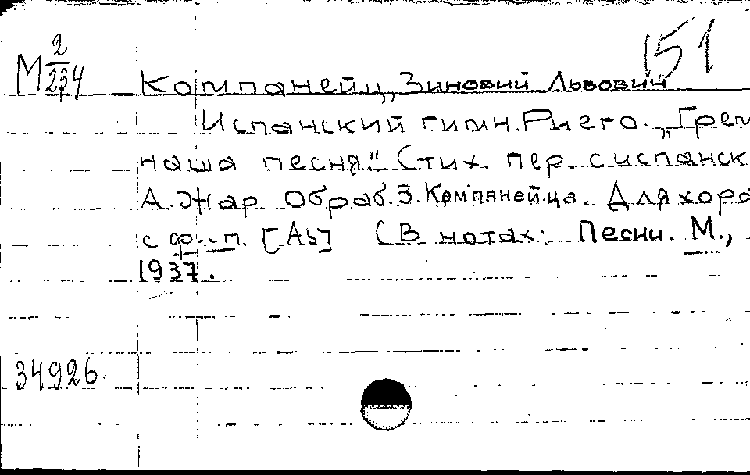 151
М 2/234
Компанейц, Зиновий Львович
Испанский гимн Риего. „Грем
наша песня". Стих. пер. с испанск
А. Жар. Обраб. З. Компанейца. Для хора
с ф.-п. [As] (В нотах: Песни. М.,
1937.
34926